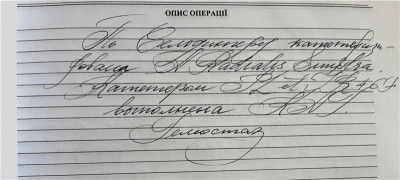 ОПИС ОПЕРАЦІЇ
По Сельдингеру катетери-
зована A. Radialis Sinistra
Катетером
выполнена
Гемостаз